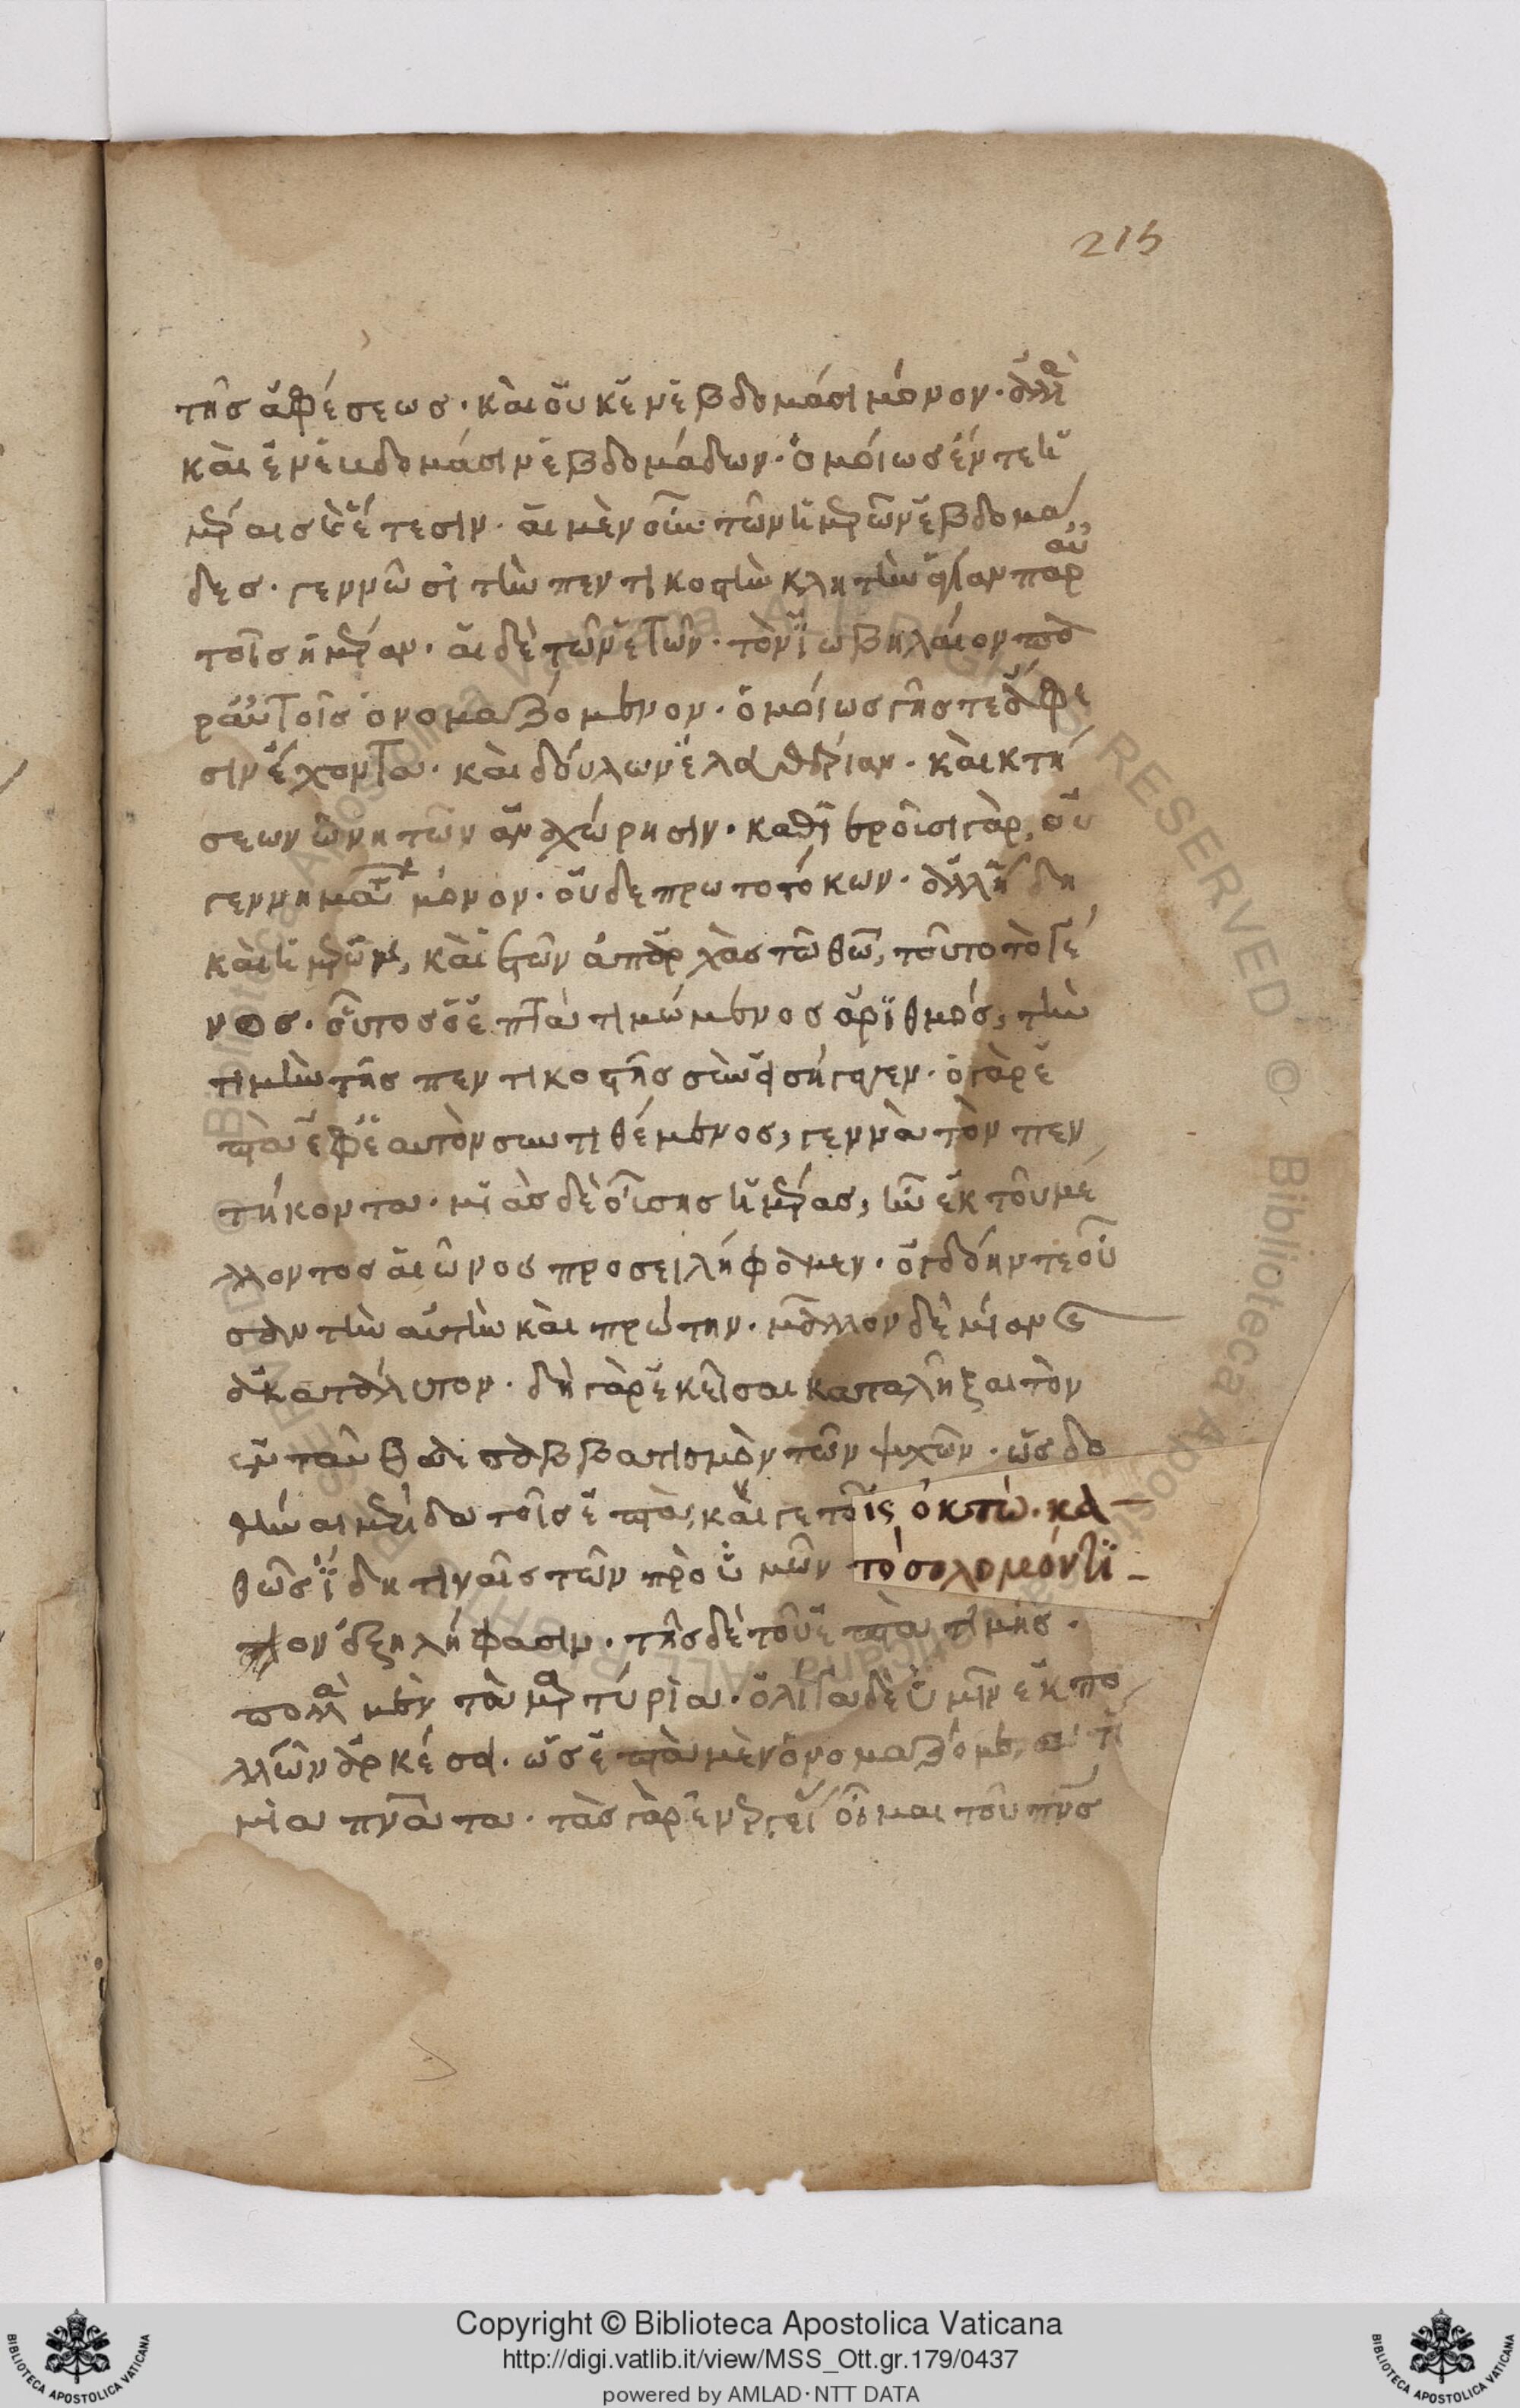 215
της ἀφέσεως· καὶ οὐκ ἐν ἑβδομάσι μόνον· ἀλλὰ
καὶ ἐν ἑυδομάσιν ἑβδομάδων· ὁμοίως ἔν τε ἡ
μέραις καὶ ἔτεσιν· αἱ μὲν οὖν τῶν ἡμερῶν ἑβδομα
δες· γεννῶσι τὴν πεντικοστὴν κλητὴν ἁγίαν παρ αὐ
τοῖς ἡμέραν· αἱ δὲ τῶν ἐτῶν· τὸν ἰωβηλαίον πα
ρ αὐτοῖς ὀνομαζόμενον· ὁμοίως γῆς τε ἄφε
σιν ἔχοντα· καὶ δούλων ἐλευθερίαν· καὶ κτή
σεων ὠνητῶν ἀναχώρησιν· καθιεροῖ γὰρ, οὐ
γεννημάτων μόνον· οὐδε πρωτοτόκων· ἀλλ ἤδη
καὶ ἡμερῶν, καὶ ἐτῶν ἀπαρχὰς τῶ θῶ, τοῦτο τὸ γέ
νος· οὕτος ὁ ἑπτὰ τιμώμενος ἀριθμός, τὴν
τιμὴν τῆς πεντικοστῆς συνεισήγαγεν· ὁ γὰρ ἑ
πτὰ ἐφ ἑαυτὸν συντιθέμενος, γεννᾶ τὸν πεν
τήκοντα· μιᾶς δεούσης ἡμέρας, ἣν ἐκ τοῦ με
λλοντος αἰῶνος προσειλήφαμεν· ὀγδόην τε οὖ
σαν τὴν αὐτὴν καὶ πρώτην· μᾶλλον δὲ μίαν καὶ
ἀκατάλυτον· δεῖ γὰρ ἐκεῖσαι καταλῆξαι τὸν
ἐνταῦθα σαββατισμὸν τῶν ψυχῶν· ὡς δο
θῆναι μερίδα τοῖς ἑπτὰ, καί γε τοῖς ὀκτώ· κα
θὼς ἤδη τιναῖς τῶν πρὸ ὑμῶν τὸ σολομόντι
τιον ἐξηλήφασιν· τῆς δὲ τοῦ ἑπτὰ τιμῆς·
πολλὰ μὲν τὰ μαρτύρια· ὀλίγα δὲ ὑμῖν ἐκ πο
λλῶν ἀρκέσει· ὡς ἑπτὰ μὲν ὀνομαζόμενα τί
μια πνατα· τὰς γὰρ ἐνεργείας οἶμαι τοῦ πνς
Copyright © Biblioteca Apostolica Vaticana
http://digi.vatlib.it/view/MSS_Ott.gr.179/0437
powered by AMLAD·NTT DATA